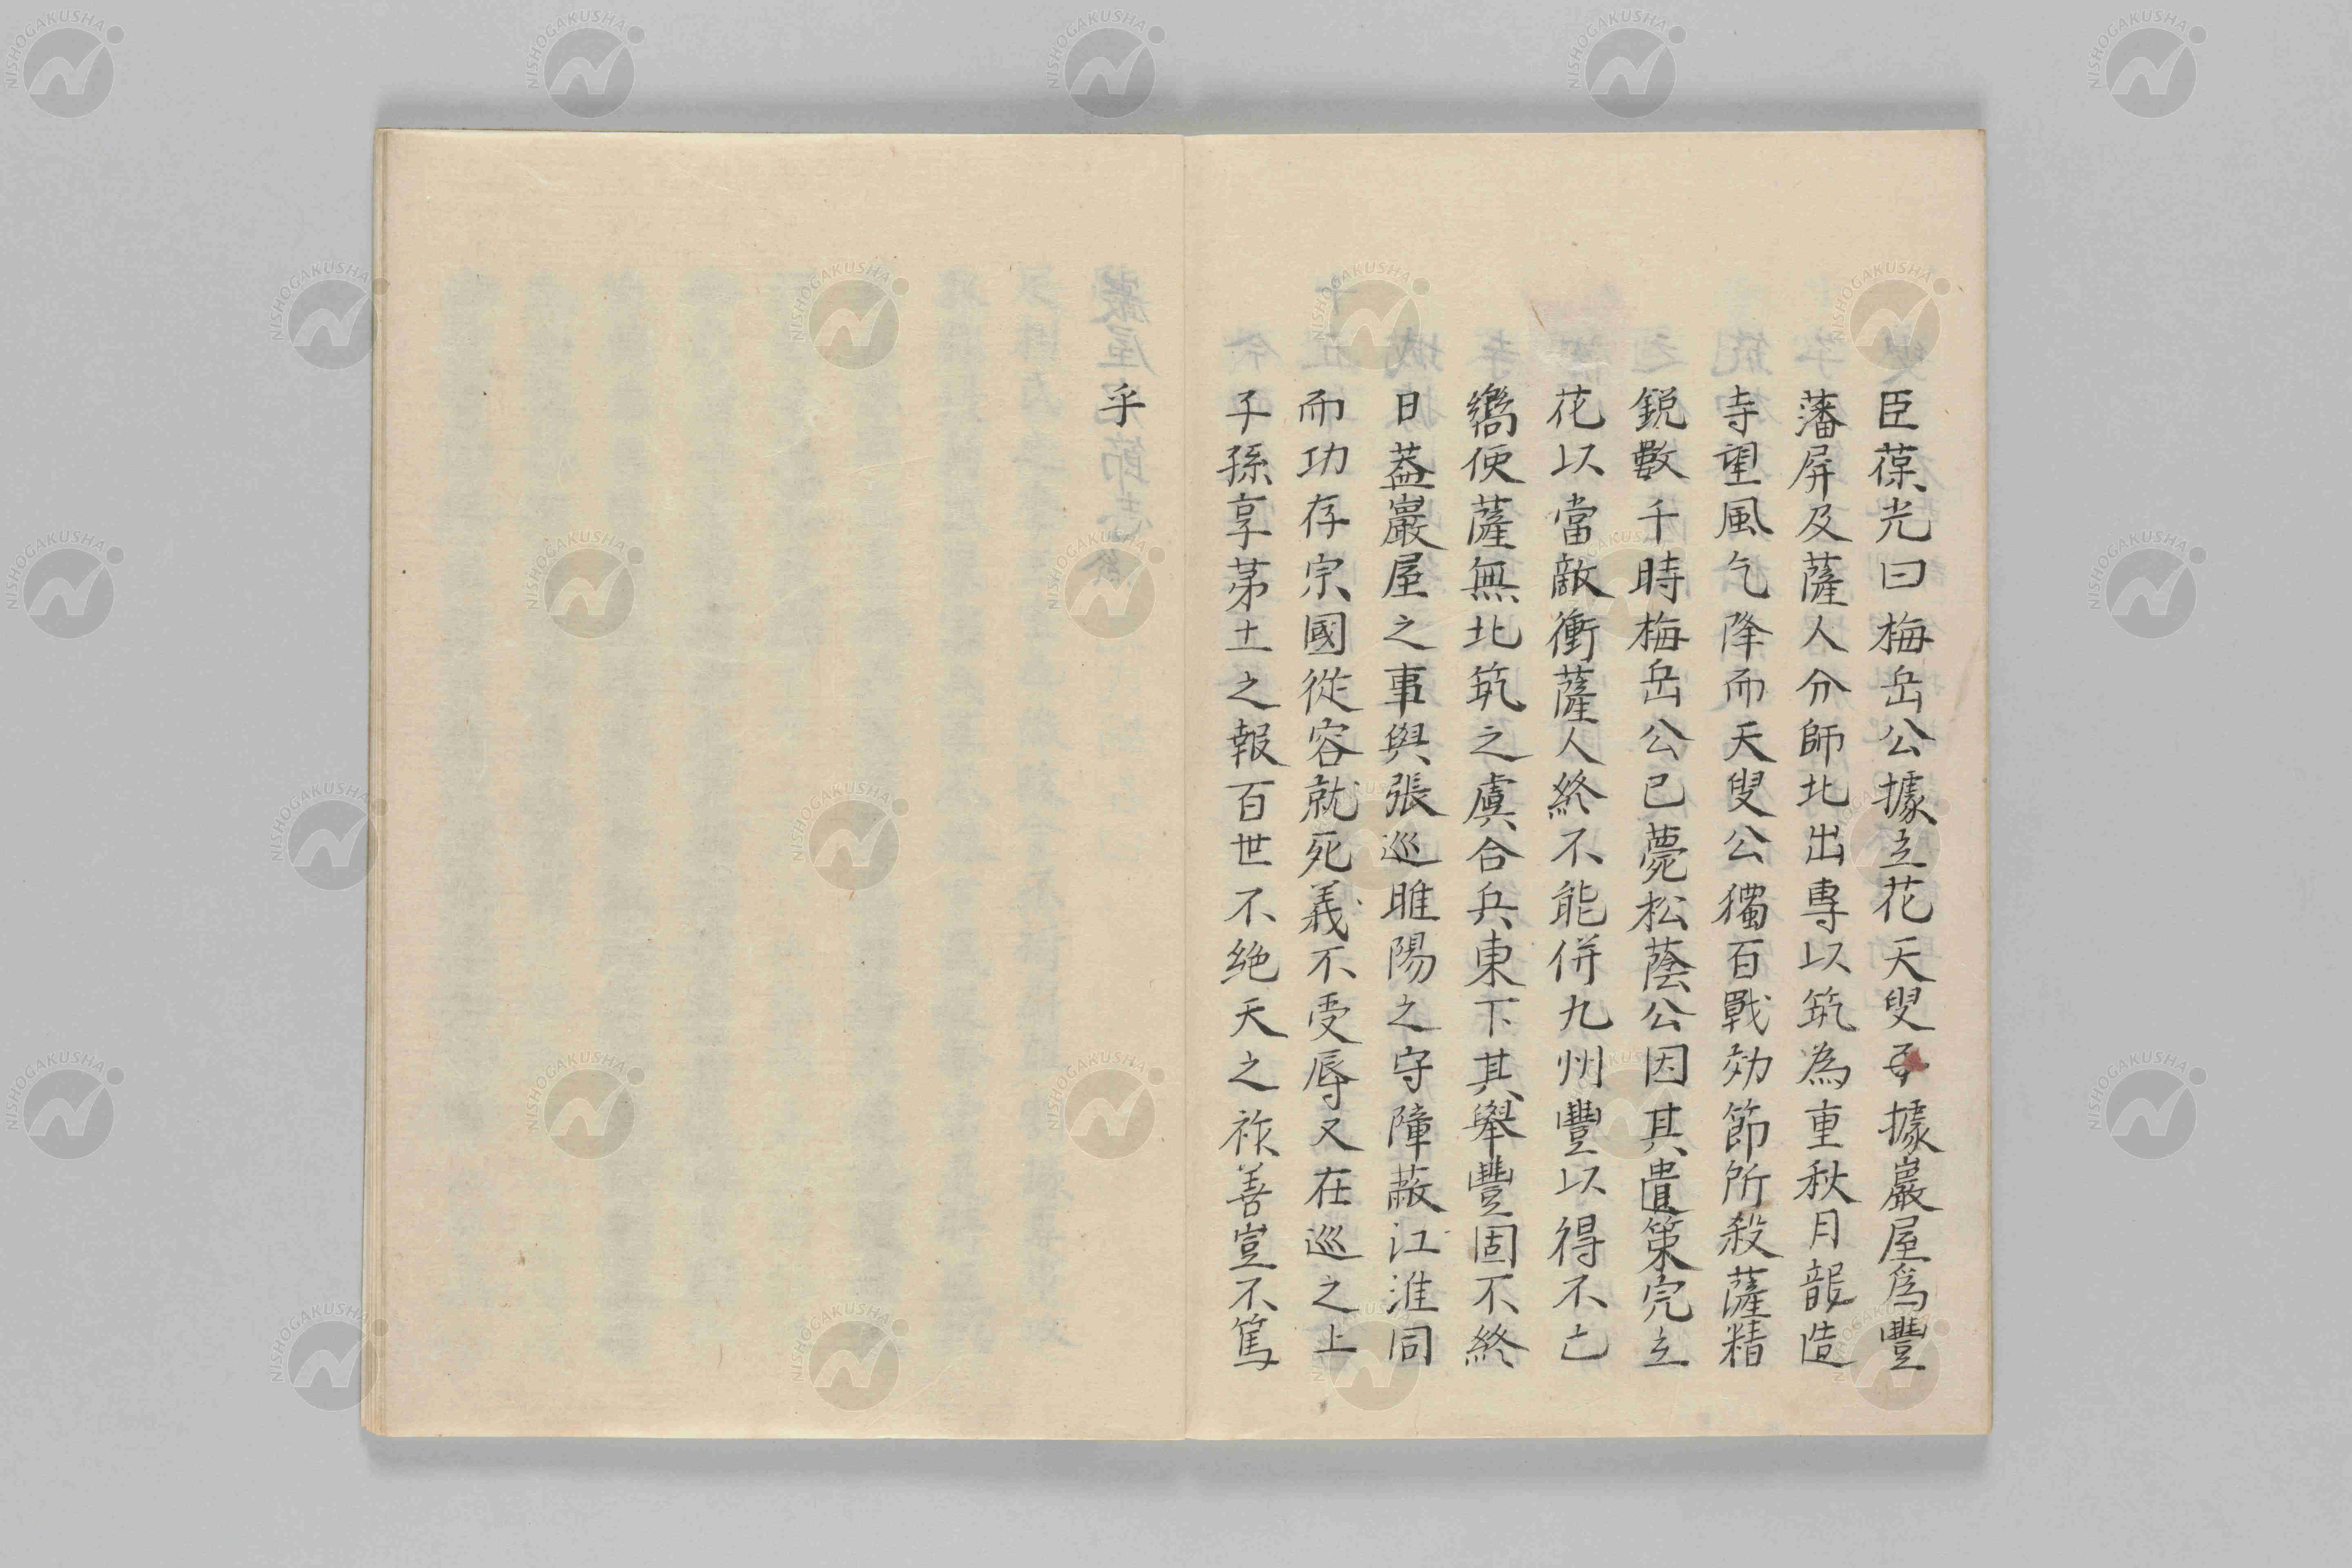 臣葆光曰梅岳公據立花天叟子據巖屋爲豐
藩屏及薩人分師北出專以筑為重秋月龍造
寺望風乞降而天叟公獨百戰効節所殺薩精
鋭數千時梅岳公已薨松蔭公因其遺策完立
花以當敵衝薩人終不能併九州豐以得不亡
嚮使薩無北筑之虞合兵東下其舉豐固不終
日蓋巖屋之事與張巡睢陽之守障蔽江淮同
而功存宗國從容就死義不受辱又在巡之上
子孫享茅土之報百世不絶天之祚善豈不篤
乎
NISHOGAKUSHA